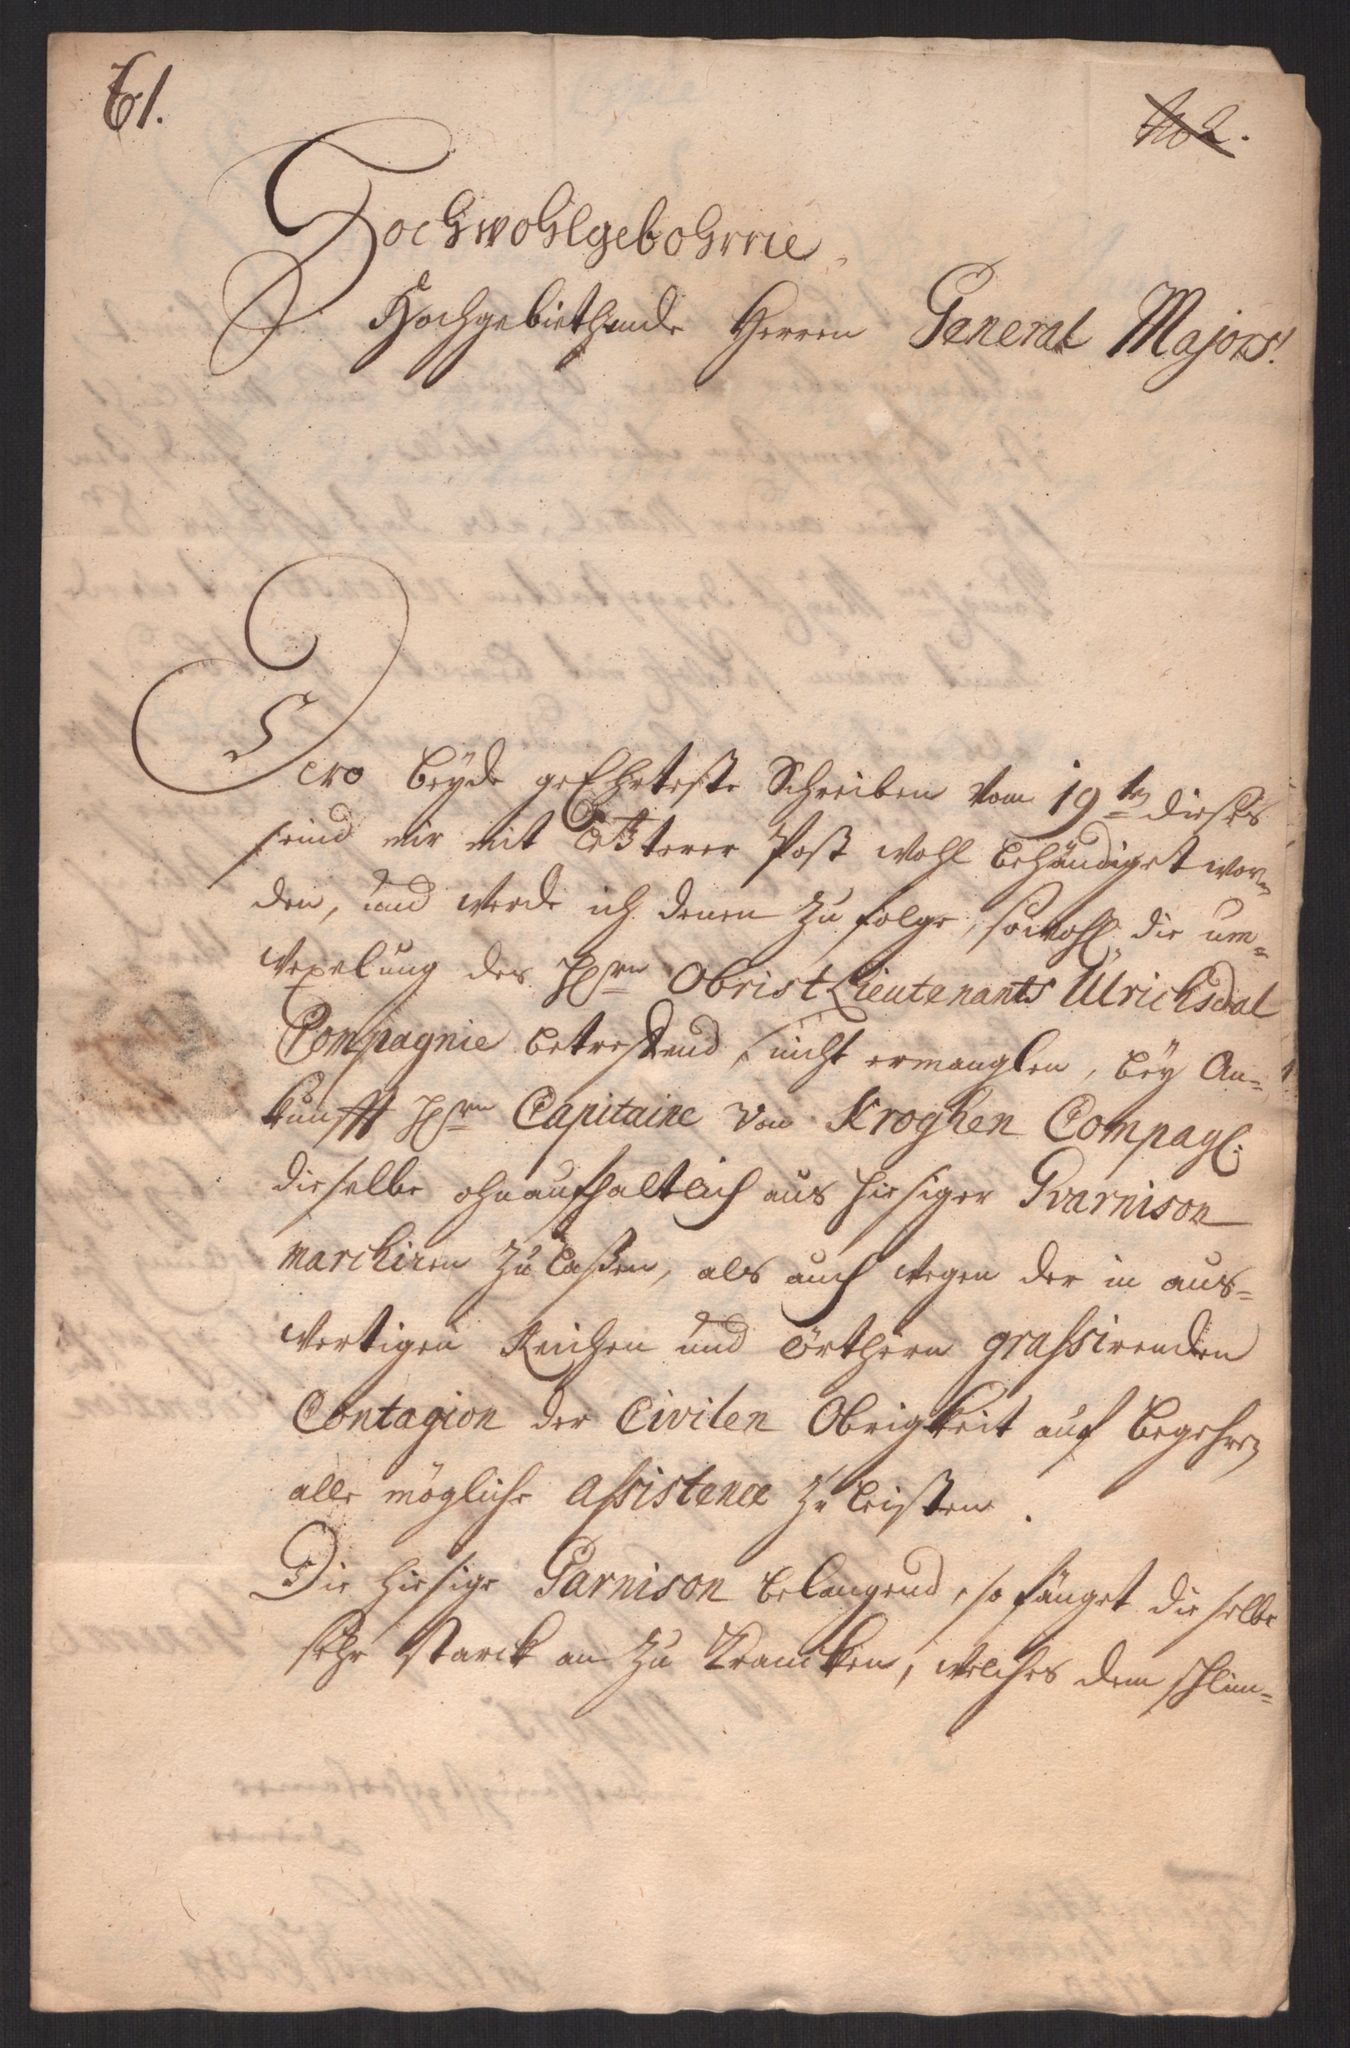 61.
No 2.
Hochwohlgebohrne
Hochgebiethende Herren General Majors!
Dero beyde geEhrteste Schreiben vom 19ten dieses
seind mir mit letzterer Post wohl behändiget wor-
den, und werde ich denen zu folge, sowohl die um-
wexelung des Hrn Obrist Lieutenants Ulrichsdal
Compagnie betreffend, nicht ermanglen, bey An-
kunfft Hrn Capitaine von Kroghen Compagl:
dieselbe ohnaufhaltlich aus hiesiger Gvarnison
marchiren zu laßen, als auch wegen der in aus-
wertigen Reichen und Örthern grassirenden
Contagion der Civilen Obrigkeit auf begehren
alle mögliche assistence zu leisten.
Die hiesige Garnison belangend, so fänget dieselbe
sehr starck an zu krancken, welches dem schlim-